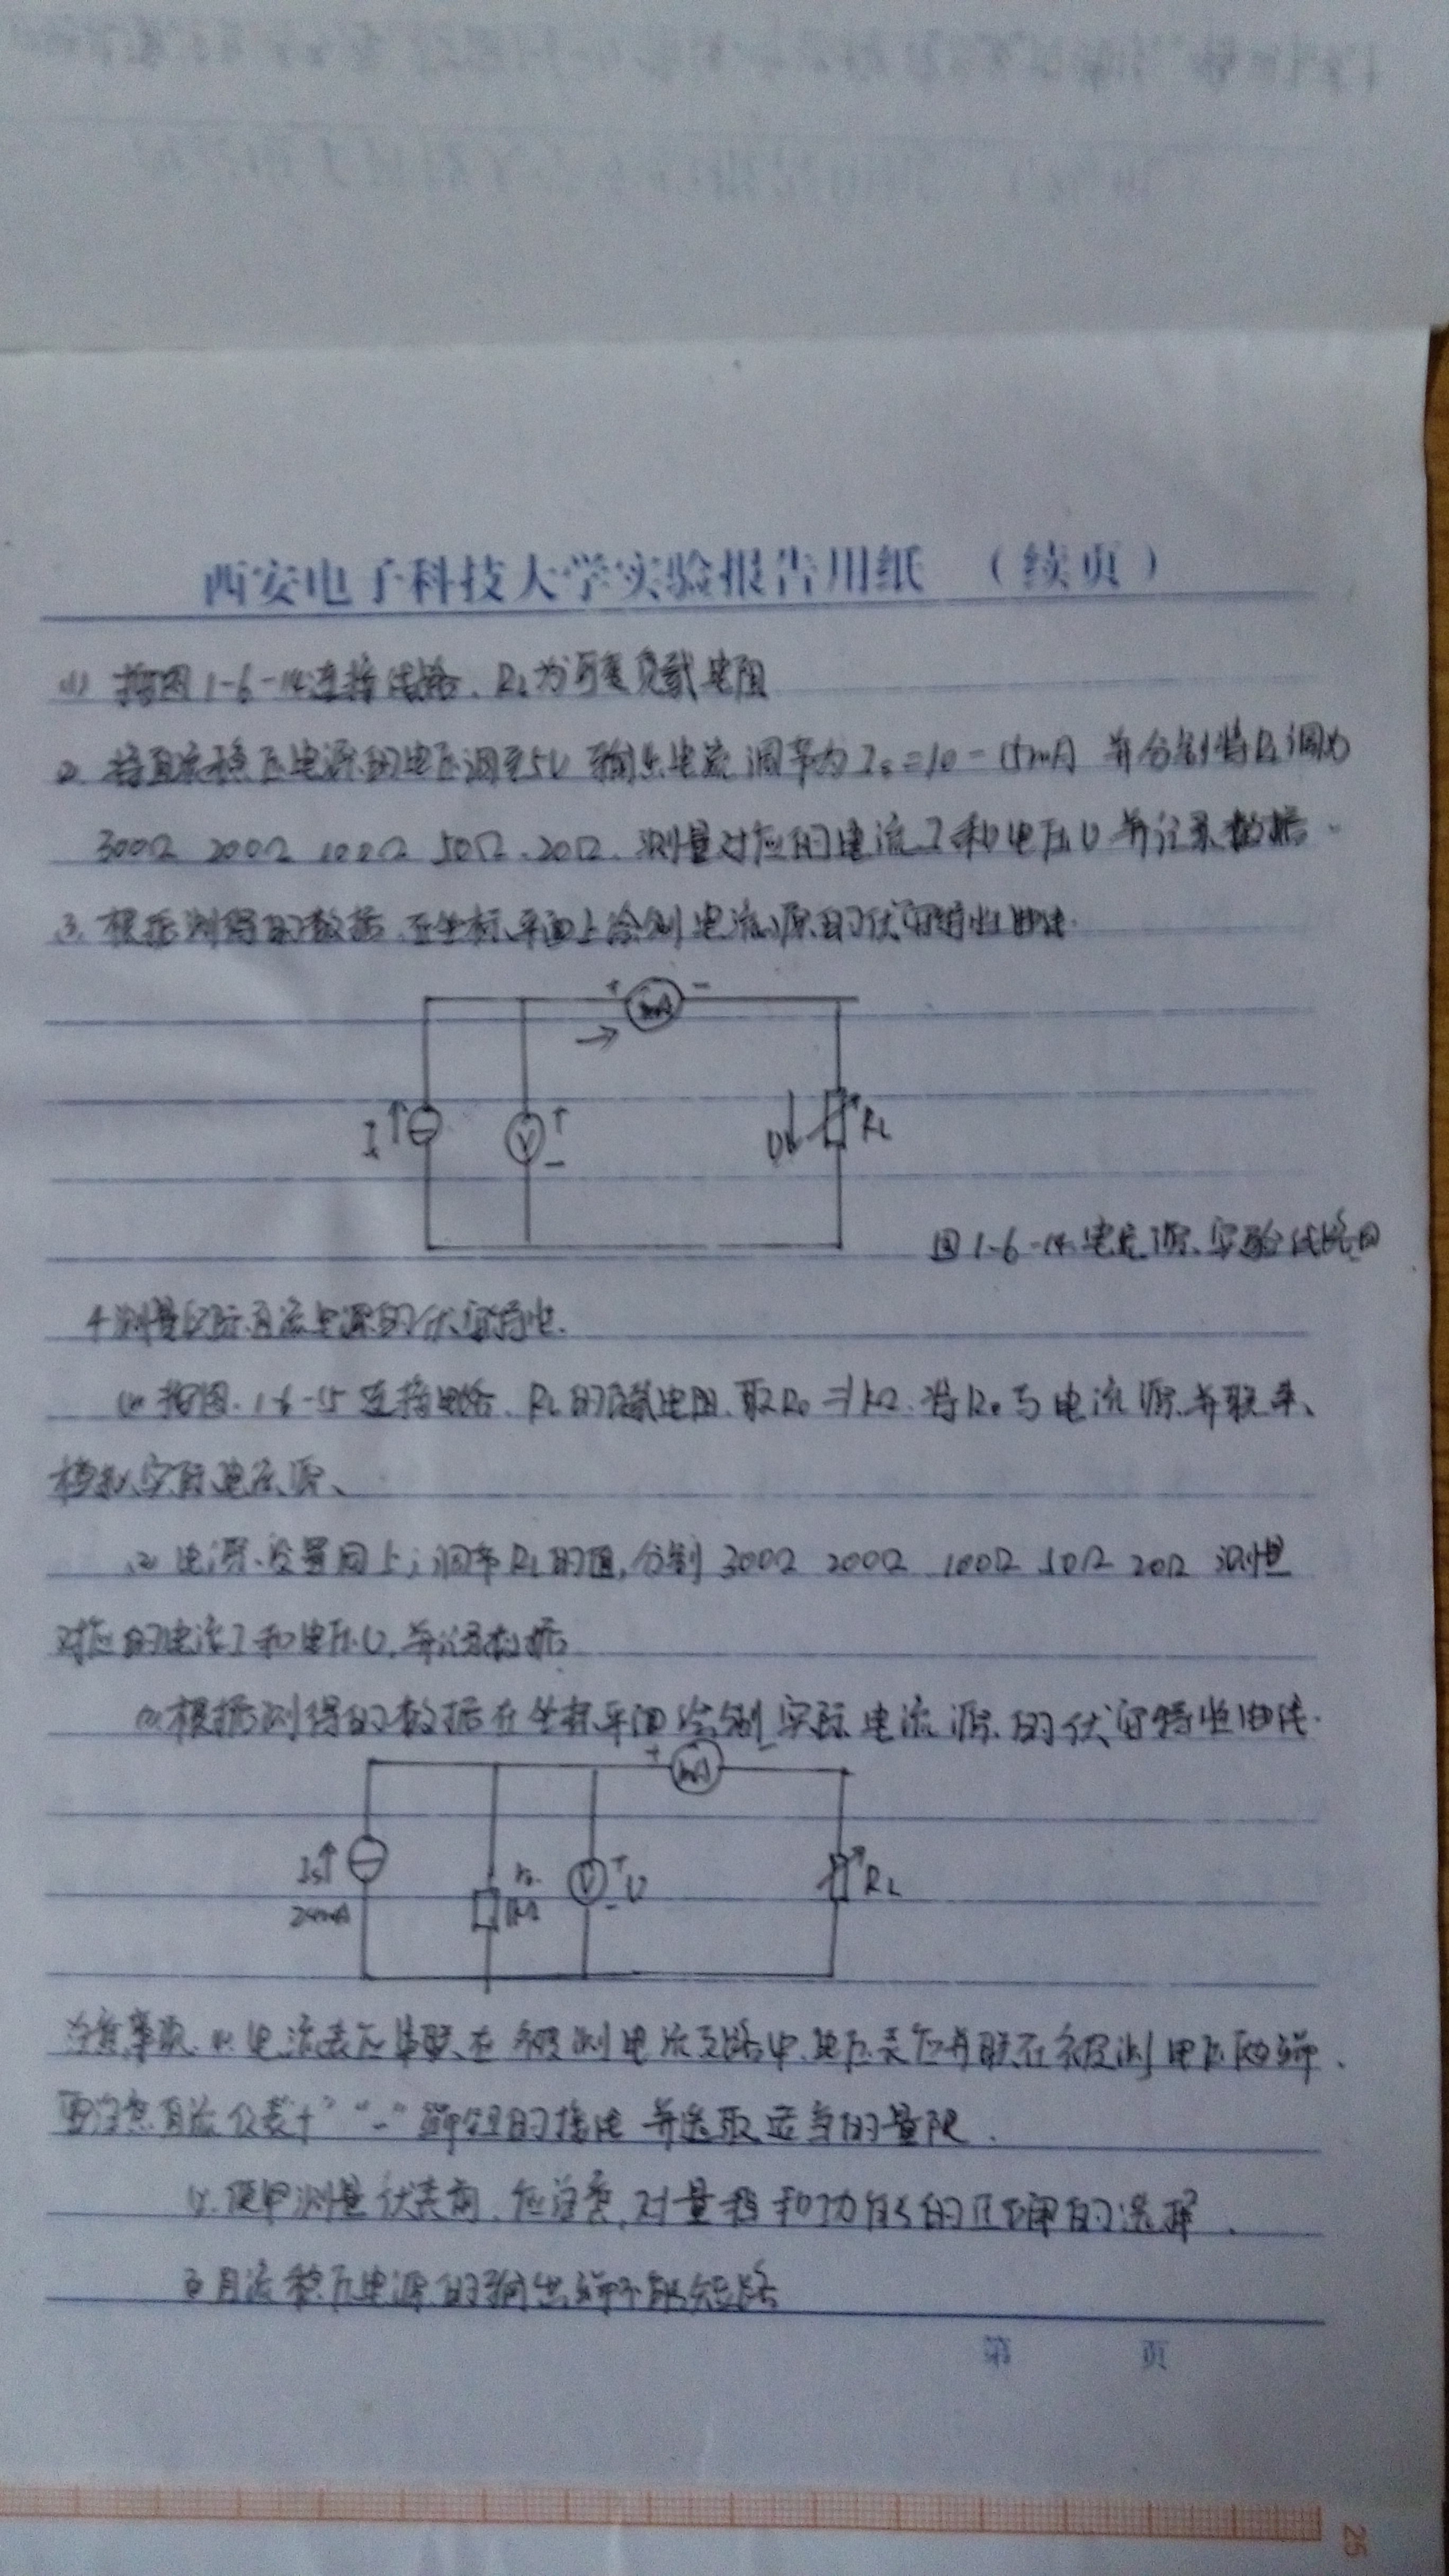 西安电子科技大学实验报告用纸 (续页)
(1) 按图1-6-14连接线路. RL为可变负载电阻
2. 将直流稳压电源的电压调至5V 输出电流调节为Is=10-15mA 并分别将RL调为
300Ω 200Ω 100Ω 50Ω.20Ω.测量对应的电流I和U电压U并记录数据.
3.根据测得的数据.在坐标平面上绘制电流源的伏安特性曲线.
+ mA -
Is V + - U RL
图1-6-14.电流源.实验线路图
4测量实际直流电源的伏安特性.
(1)按图.1-6-15连接电路.RL的负载电阻.取Ro=1kΩ.将Ro与电流源并联来、
模拟实际电流源、
(2)电源.设置同上;调节RL的值,分别300Ω 200Ω 100Ω 50Ω 20Ω 测量
对应的电流I和电压U.并记录数据
(3)根据测得的数据在坐标平面绘制实际电流源的伏安特性曲线.
+ mA -
Is ro. 1kΩ V + - U RL
24mA
注意事项.(1).电流表应串联在被测电流支路中.电压表应并联在被测电压两端.
要注意直流仪表+" "-"端钮的接法 并选取适当的量限.
(2).使用测量仪表前.应注意.对量程和功能的正确的选择.
3直流稳压电源的输出端不能短路
第 页
25